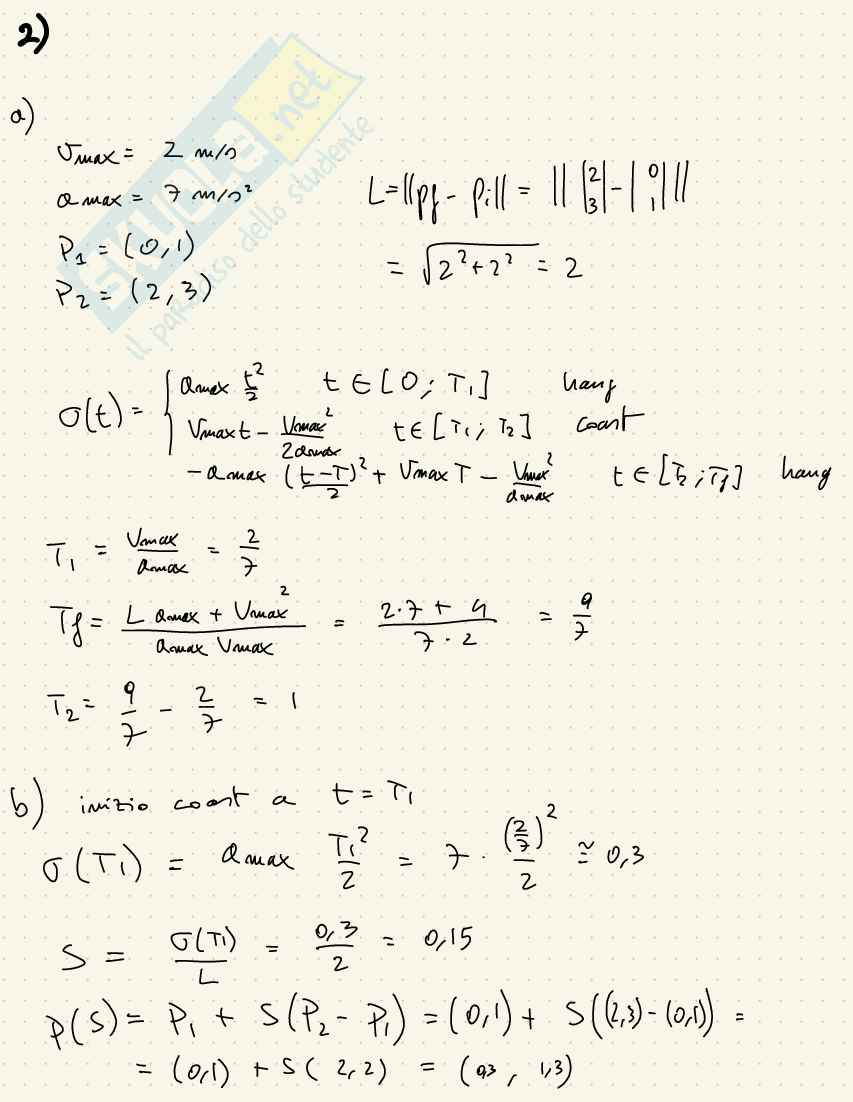 2)
a)
Vmax = 2 m/s
amax = 7 m/s²
P₁ = (0,1)
P₂ = (2,3)
L = ||pf - pi|| = || |2 3| - |0 1| ||
= √(2² + 2²) = 2
SKUOLA.net
il paradiso dello studente
σ(t) = { amax t²/2 t ∈ [0; T₁] bang
Vmax t - Vmax²/2amax t ∈ [T₁; T₂] coast
-amax (t-T)²/2 + Vmax T - Vmax²/amax t ∈ [T₂; Tf] bang
T₁ = Vmax/amax = 2/7
Tf = (L amax + Vmax²)/(amax Vmax) = (2·7 + 4)/(7·2) = 9/7
T₂ = 9/7 - 2/7 = 1
b) inizio coast a t = T₁
σ(T₁) = amax T₁²/2 = 7 · (2/7)²/2 ≅ 0,3
S = σ(T₁)/L = 0,3/2 = 0,15
P(S) = P₁ + S(P₂ - P₁) = (0,1) + S((2,3) - (0,1)) =
= (0,1) + S(2,2) = (0,3 , 1,3)